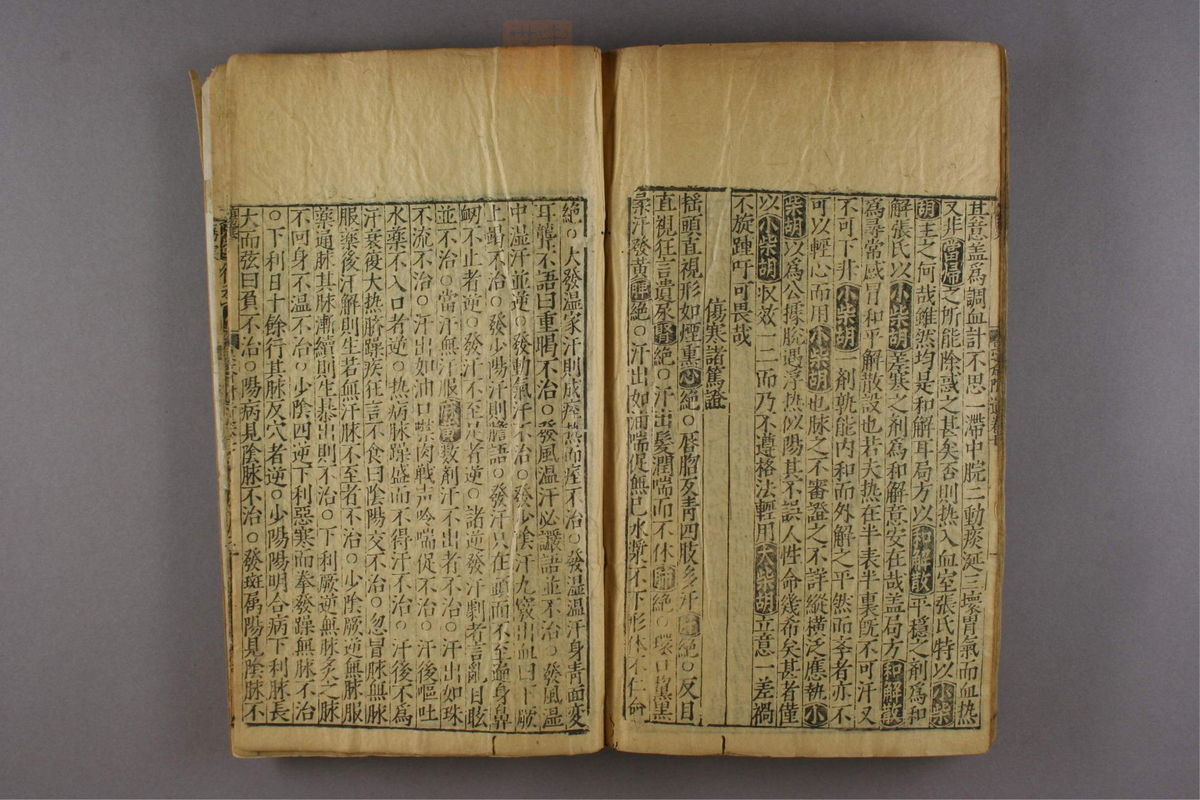 其意蓋為調血計不思一滯中脘二動痰涎三壞胃氣而血热
又非當歸之所能除惑之甚矣否則热入血室張氏特以小柴
胡主之何哉雖然均是和解耳局方以和解散平穩之剤為和
解張氏以小柴胡差寒之剤為和解意安在哉盖局方和解散
為尋常感冒和平解散設也若大热在半表半裏既不可汗又
不可下非小柴胡一剤孰能内和而外解之平然而李者亦不
可以輕心而用小柴胡也脉之不審證之不詳縱横泛應執小
柴胡以為公據脱遇浮热似陽其不誤人性命幾希矣甚者僅
以小柴胡収效一二而乃不遵格法輕用大柴胡立意一差禍
不旋踵吁可畏哉
傷寒諸篤證
揺頭直視形如煙熏心絶○唇胞反青四肢多汗 絶○反目
直視狂言遺尿腎絶○汗出髪潤喘而不休肺絶○環口黧黒
柔汗發黄脾絶○汗出如油喘促無已水漿不下形体不仁命
絶○大發温家汗則成痙热而痙不治○發湿温汗身青面変
耳聾不語曰重暍不治○發風温汗必讝語並不治○發風温
中湿汗並逆○發動氣汗不治○發少陰汗九竅出血曰下厥
上竭不治○發少陽汗則譫語○發汗只在頭面不至遍身鼻
衂不止者逆○發汗不至足者逆○諸逆發汗劇者言亂目眩
並不治○當汗無汗服麻黄数剤汗不出者不治○汗出如珠
不流不治○汗出如油口噤肉戦声吟喘促不治○汗後嘔吐
水藥不入口者逆○热病脉躁盛而不得汗不治○汗後不為
汗衰復大热脉躁疾狂言不食曰陰陽交不治○忽冒脉無脉
服藥後汗解則生若無汗脉不至者不治○少陰厥逆無脉服
藥通脉其脉漸續則生暴出則不治○下利厥逆無脉灸之脉
不回身不温不治○少陰四逆下利惡寒而拳發躁無脉不治
○下利日十餘行其脉反穴者逆○少陽陽明合病下利脉長
大而弦曰負不治○陽病見陰脉不治○發斑属陽見陰脉不